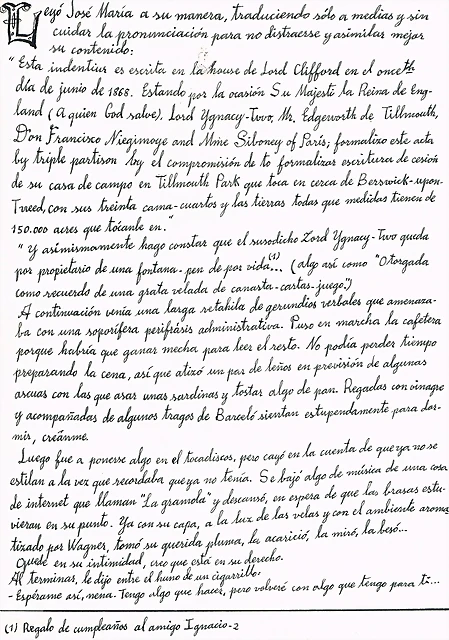 Leyó José María a su manera, traduciendo sólo a medias y sin
cuidar la pronunciación para no distraesse y asimilar mejor
su contenido:
"Esta indentius es escrita en la house de Lord Clifford en el onceth
día de junio de 1868. Estando por la ocasión Su Majesti la Reina de Eng-
land (A quien God salve), Lord Ygnacy-Two, Mr. Edgeworth de Tillmouth,
Don Francisco Niegimoye and Mme Siboney of París; formalizo este acta
by triple partison hoy el compromisión de to formalizar escritura de cesión
de su casa de campo en Tillmouth Park que toca en cerca de Berswick-upon-
Tweed, con sus treinta cama-cuartos y las tierras todas que medidas tienen de
150.000 aires que tócanle en."
"Y asimismamente hago constar que el susodicho Lord Ygnacy-Two queda
por propietario de una fontana-pen de por vida...(1) (algo así como "Otorgada
como recuerdo de una grata velada de canasta-cartas-juego")
A continuación venía una larga retahíla de gerundios verbales que amenaza-
ba con una soporífera perifrásis administrativa. Puso en marcha la cafetera
porque habría que ganar mecha para leer el resto. No podía perder tiempo
preparando la cena, así que atizó un par de leños en previsión de algunas
ascuas con las que asar unas sardinas y tostar algo de pan. Regadas con vinagre
y acompañadas de algunos tragos de Barceló sientan estupendamente para dor-
mir, creánme.
Luego fue a ponerse algo en el tocadiscos, pero cayó en la cuenta de que ya no se
estilan a la vez que recordaba que ya no tenía. Se bajó algo de música de una cosa
de internet que llaman "La gramola" y descansó, en espera de que las brasas estu-
vieran en su punto. Ya con su capa, a la luz de las velas y con el ambiente aroma
tizado por Wagner, tomó su querida pluma, la acarició, la miró, la besó...
Quede en su intimidad, creo que está en su derecho.
Al terminar, le dijo entre el humo de un cigarrillo:
- Espérame así, nena. Tengo algo que hacer, pero volveré con algo que tengo para ti...
(1) Regalo de cumpleaños al amigo Ignacio-2